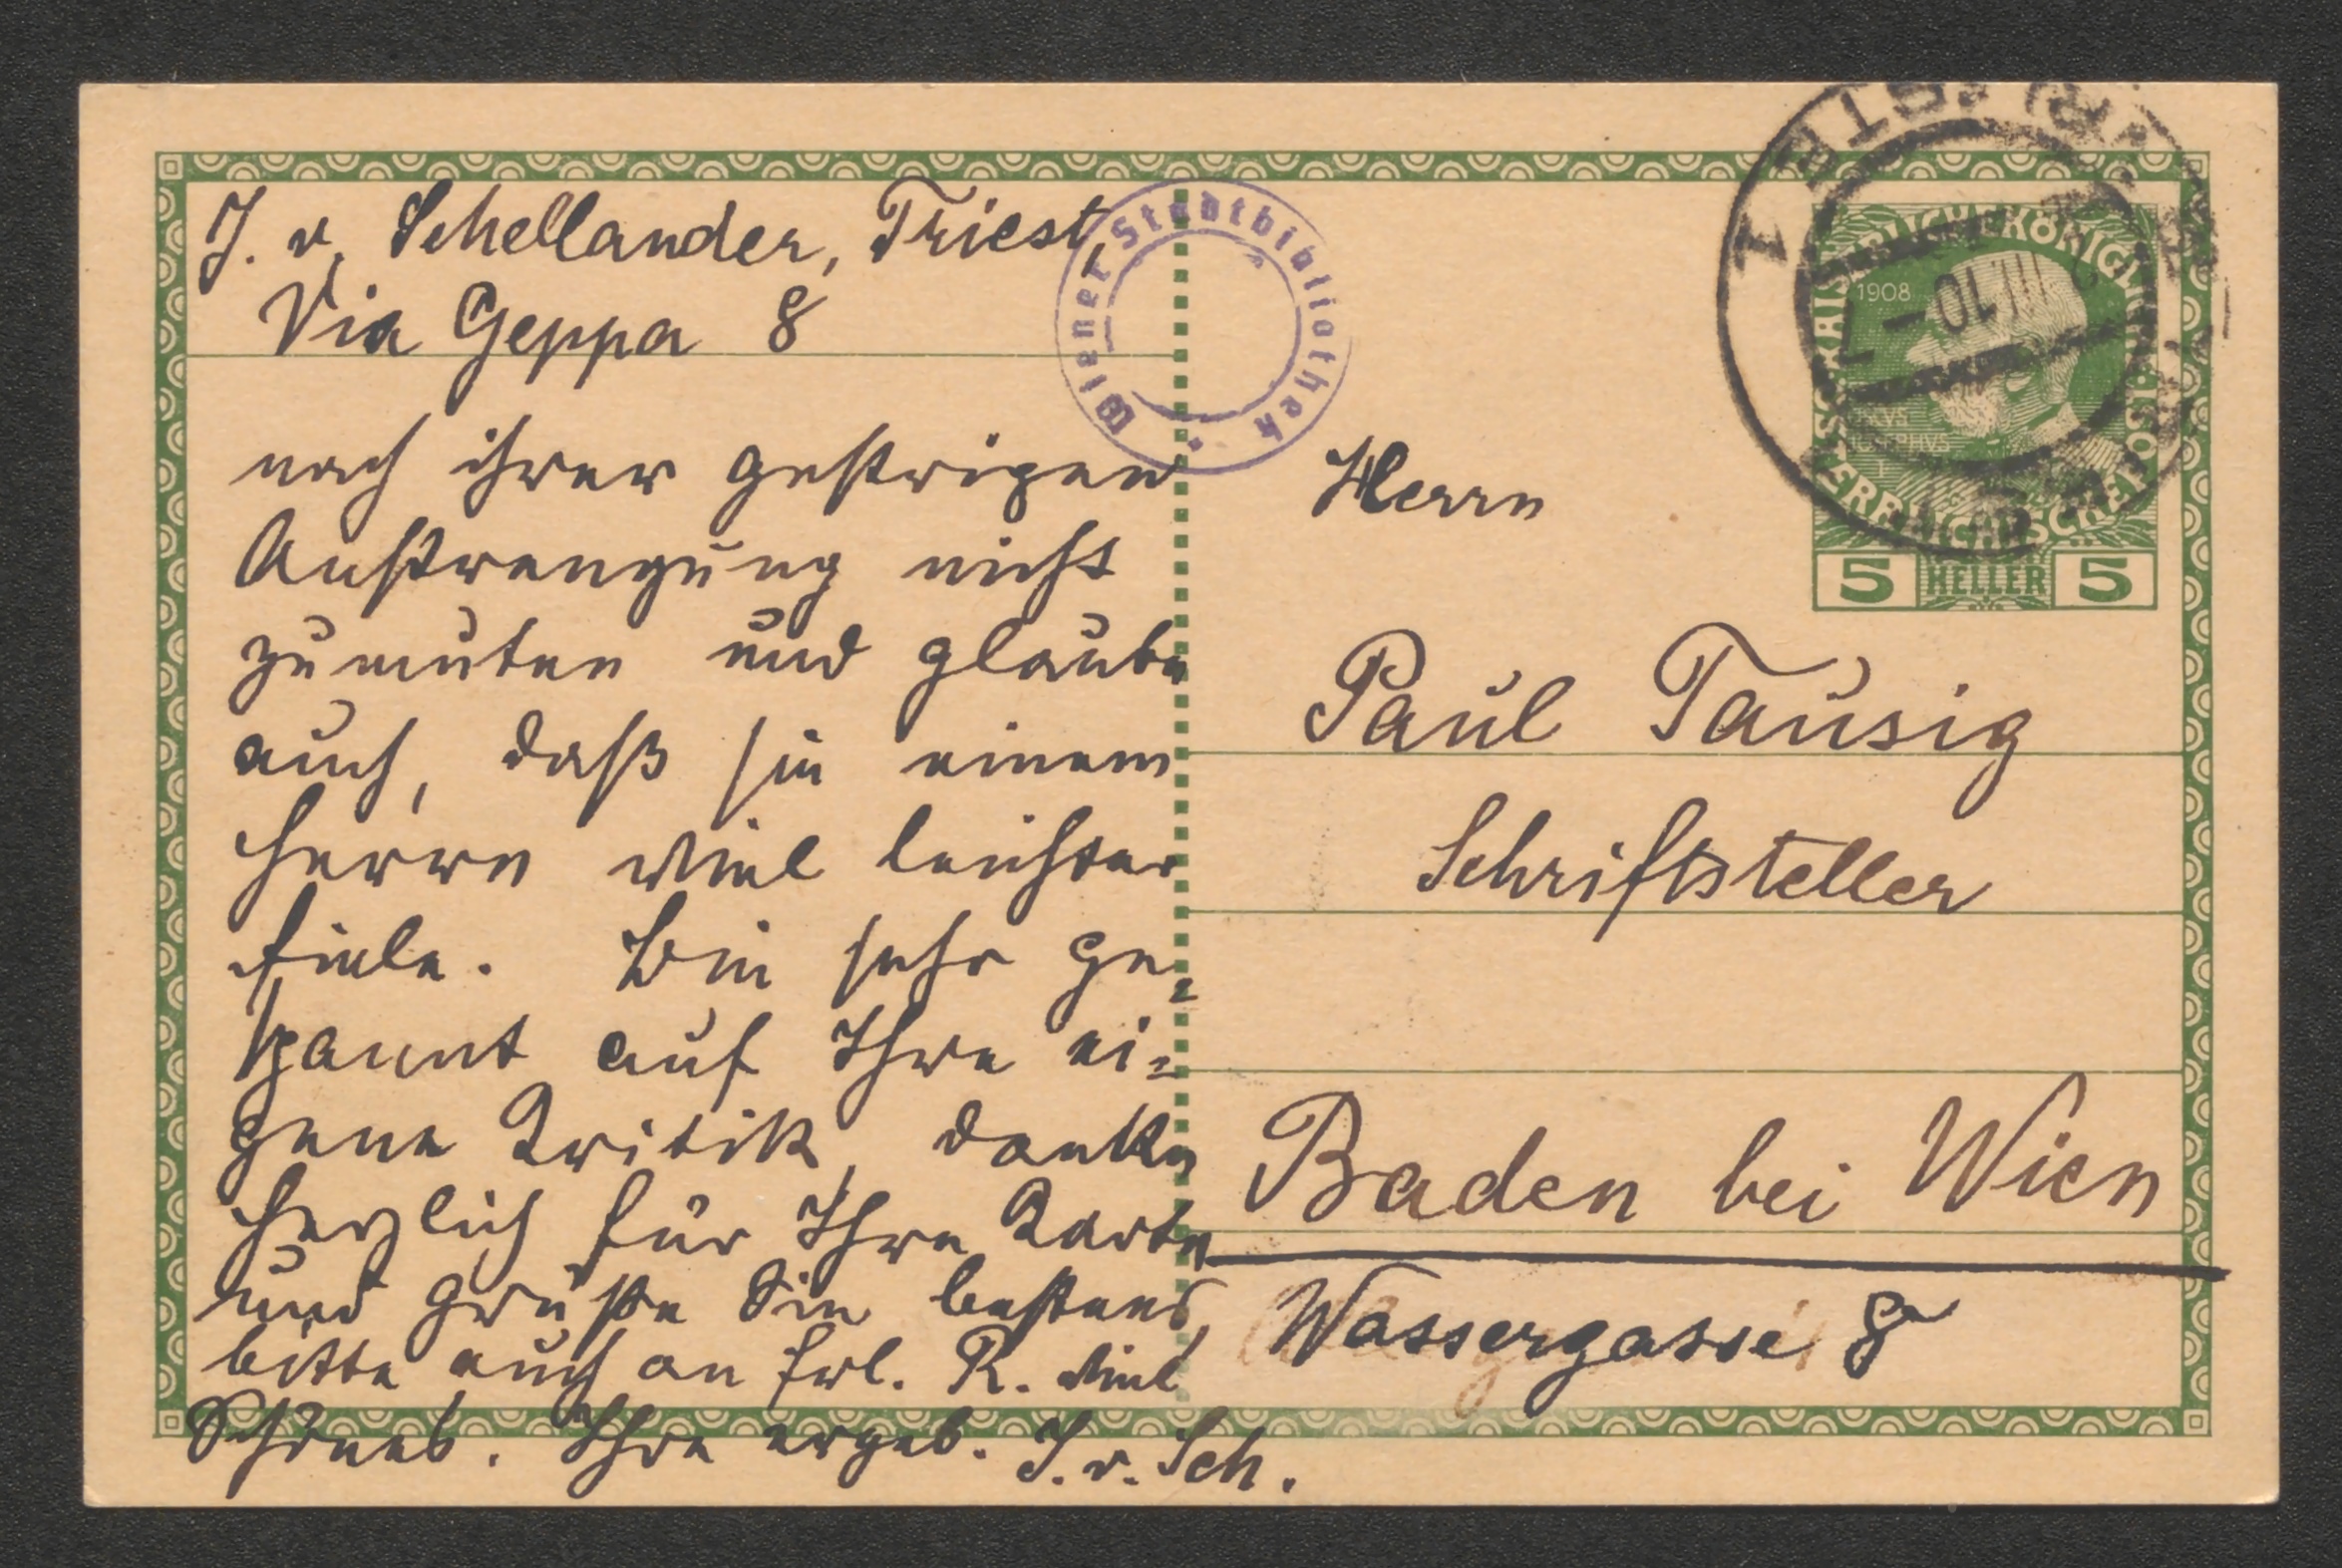 J. v. Schellander, Triest,
Via Geppa 8
nach ihrer gestrigen
Anstrengung nicht
zumuten und glaube
auch, daß sie einem
Herrn viel leichter
fiele. Bin sehr ge-
spannt auf Ihre ei-
gene Kritik, danke
herzlich für Ihre Karte
und grüße Sie bestens,
bitte auch an Frl. R. viel
Schönes. Ihre ergeb. J. v. Sch.
Wiener Stadtbibliothek
TRIEST 1
III 10 - 7
1908
KAISERLICHE KÖNIGLICHE
ÖSTERREICHISCHE POST
5 HELLER 5
Herrn
Paul Tausig
Schriftsteller
Baden bei Wien
Wassergasse 8